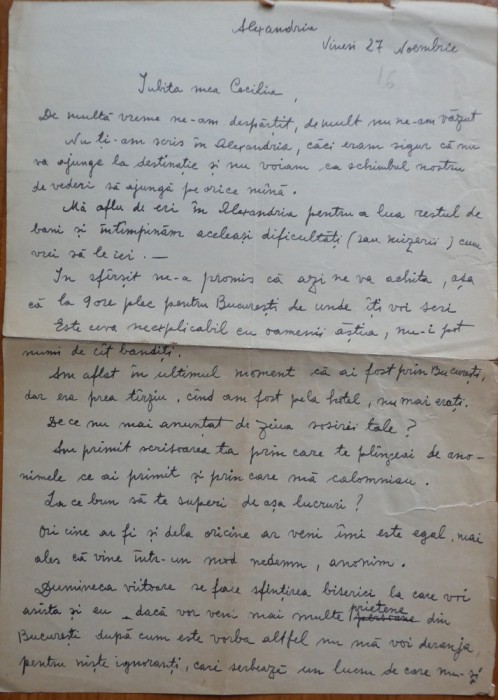 Alexandria
Vineri 27 Noembrie
16
Iubita mea Cecilia,
De multă vreme ne-am despărțit, de mult nu ne-am văzut
Nu ți-am scris în Alexandria, căci eram sigur că nu
va ajunge la destinație și nu voiam ca schimbul nostru
de vederi să ajungă pe orice mînă.
Mă aflu de eri în Alexandria pentru a lua restul de
bani și întîmpinăm aceleași dificultăți (sau mizerii) cum
vrei să le iei. —
In sfîrșit ne-a promis că azi ne va achita, așa
că la 9 ore plec pentru București de unde îți voi scri
Este ceva neexplicabil cu oamenii ăștia, nu-i pot
numi de cît bandiți.
Am aflat în ultimul moment că ai fost prin București,
dar era prea tîrziu, cînd am fost pela hotel, nu mai erați.
De ce nu mai anunțat de ziua sosirei tale?
Am primit scrisoarea ta prin care te plîngeai de ano-
nimele ce ai primit și prin care mă calomniau.
La ce bun să te superi de așa lucruri?
Ori cine ar fi și dela oricine ar veni îmi este egal, mai
ales că vine într-un mod nedemn, anonim.
Dumineca viitoare se face sfințirea biserici la care voi
asista și eu, dacă vor veni mai multe prietene persoane din
București după cum este vorba altfel nu mă voi deranja
pentru niște ignoranți, cari serbează un lucru de care nu-și